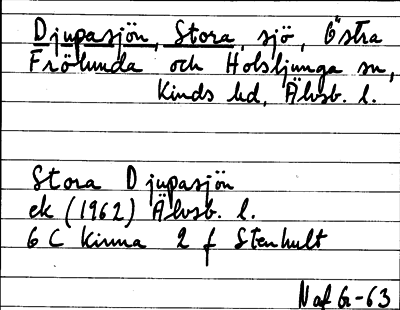 Djupasjön, Stora, sjö, Östra
Frölunda och Holsljunga sn,
Kinds hd, Älvsb. l.
Stora Djupasjön
ek (1962) Älvsb. l.
6 C Kinna 2 f Stenhult
Naf Gr-63